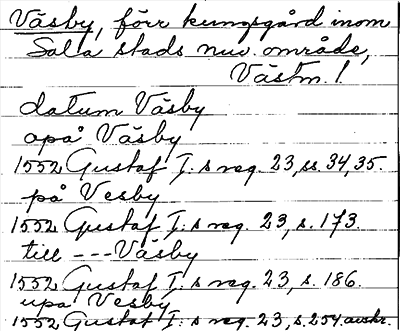 Väsby, förr kungsgård inom
Sala stads nuv. område,
Västm. l.
datum Väsby
opå Väsby
1552 Gustaf I:s reg. 23, ss. 34, 35.
på Vesby
1552 Gustaf I:s reg. 23, s. 173.
till --- Väsby
1552 Gustaf I:s reg. 23, s. 186.
upå Vesby
1552 Gustaf I:s reg. 23, s. 254 avskr.